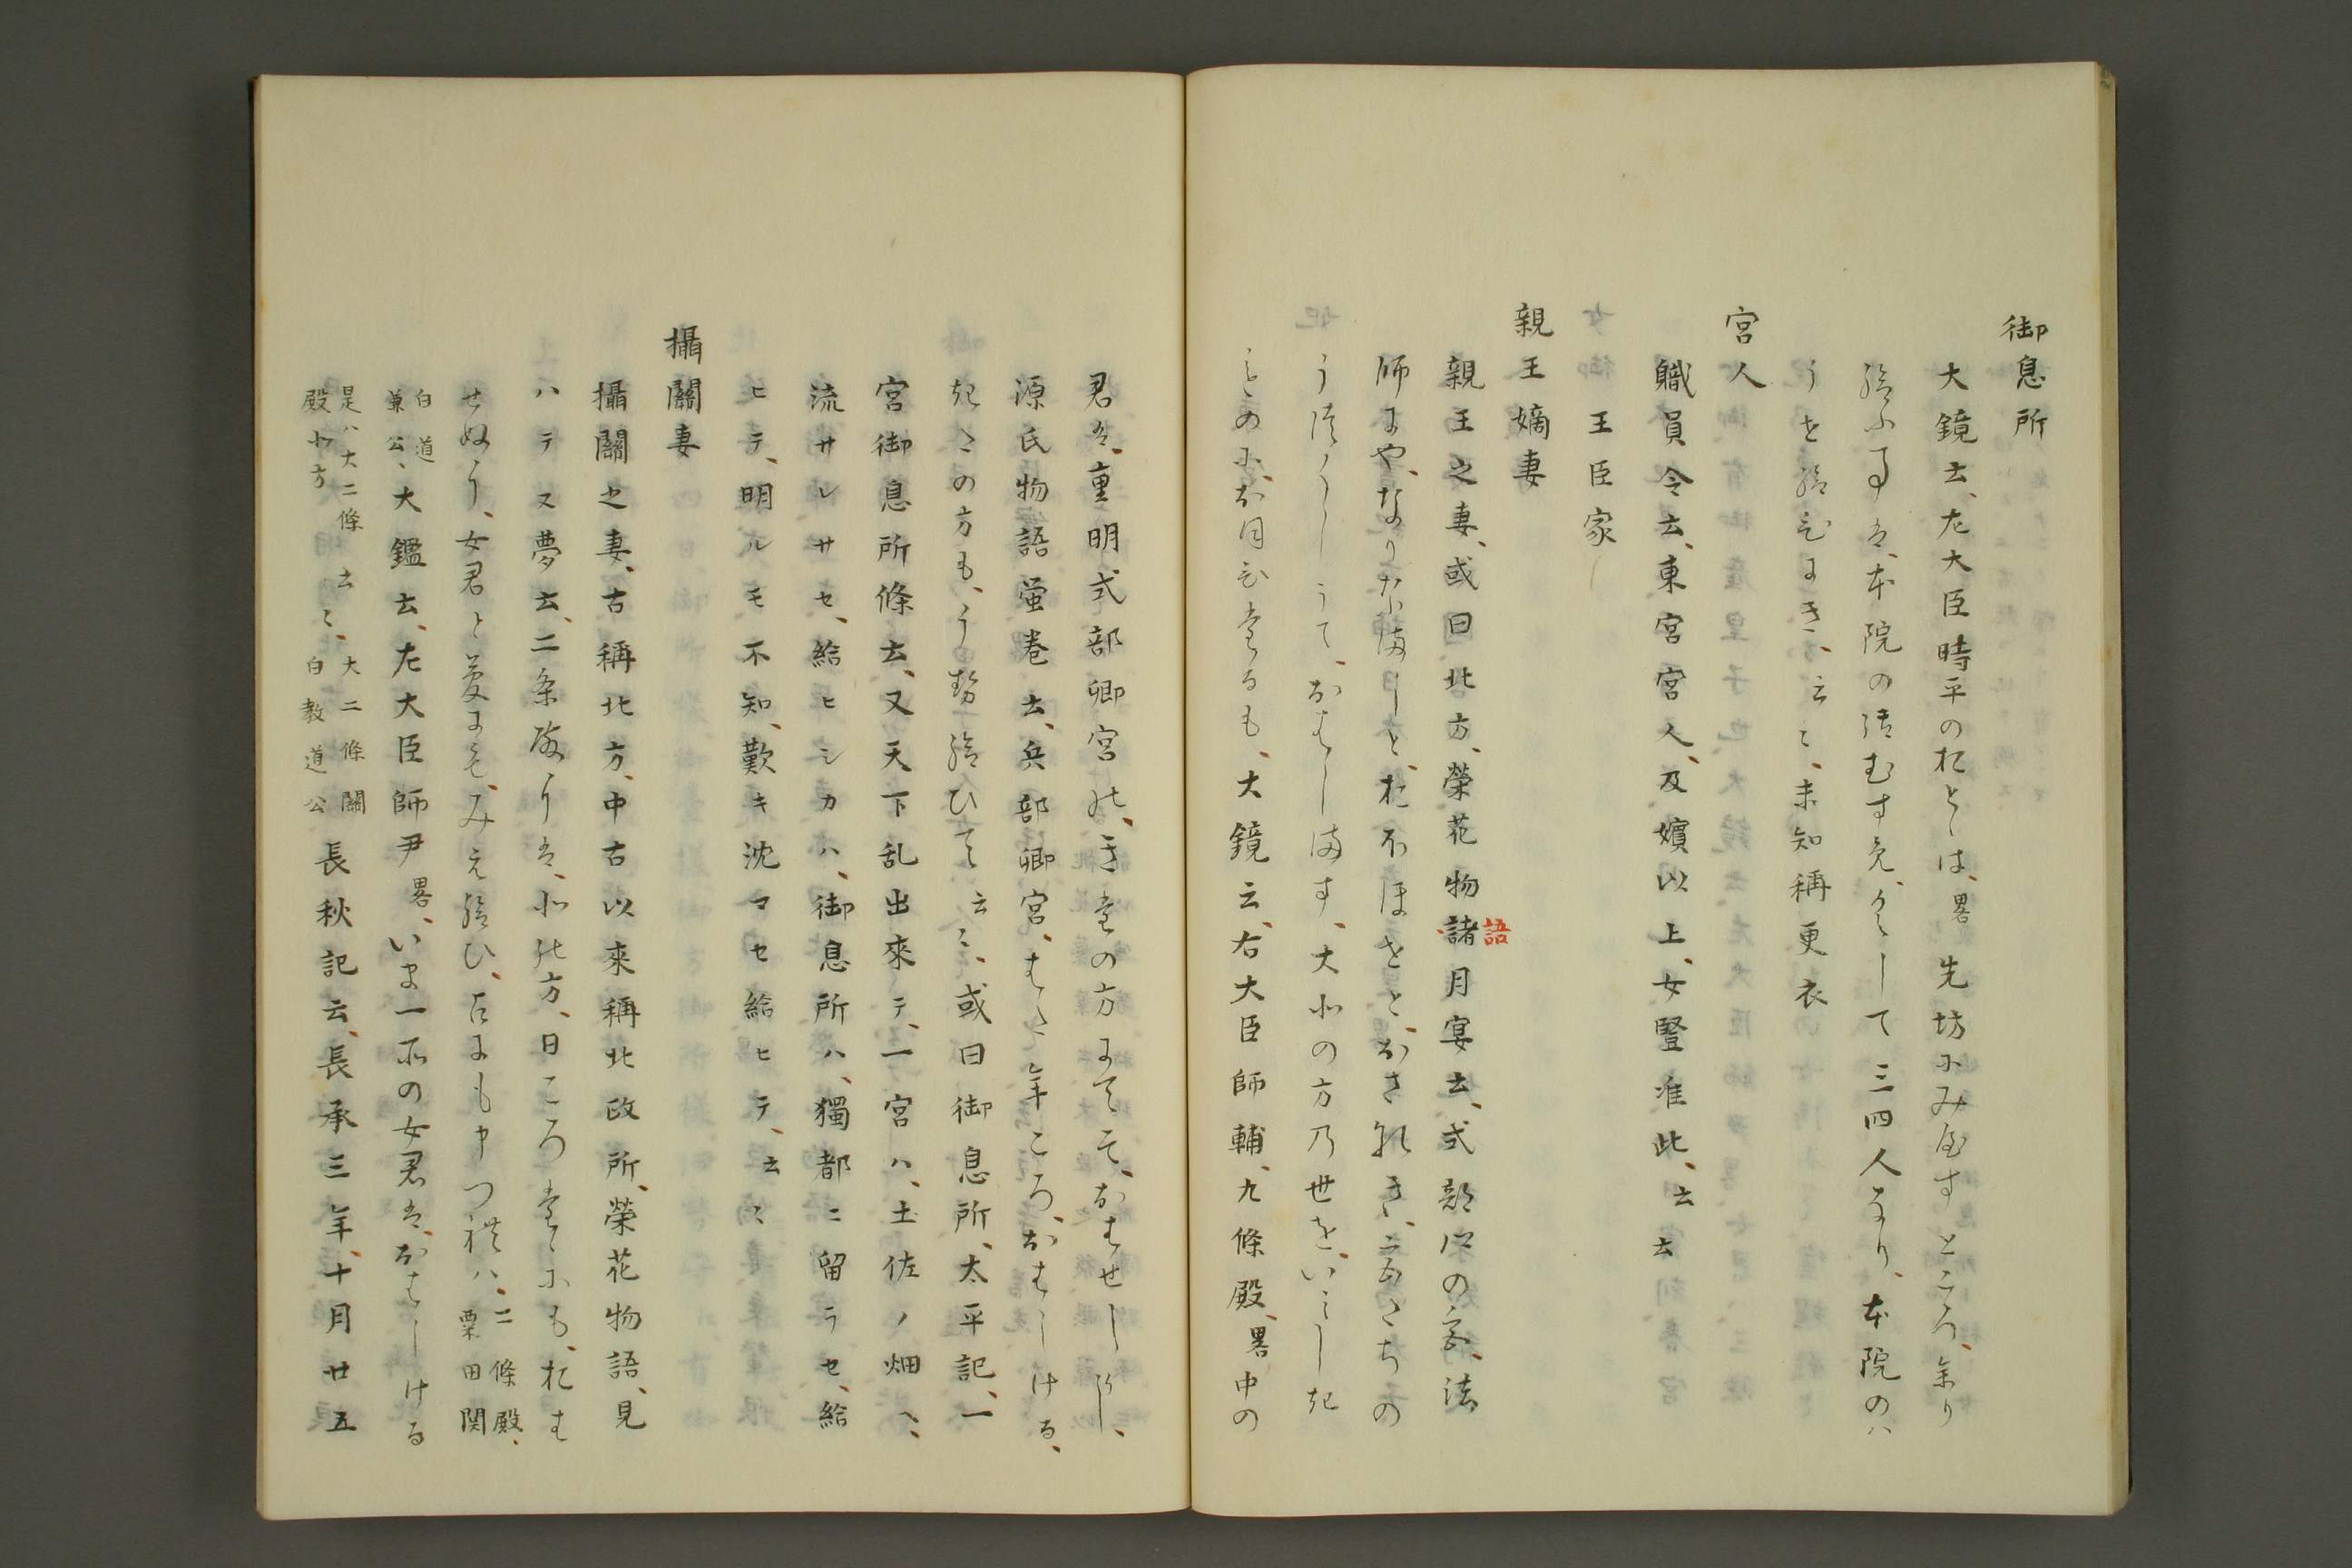 御息所
大鏡云、左大臣時平のおとゝは、畧先坊にみやすところ、余り
給ふ事は、本院の御むすめ、くして三四人なり、本院のハ
うせ給ひにき、云〻、未知稱更衣
宮人
職員令云、東宮宮人、及嬪以上、女竪准此、云云
王臣家
親王嫡妻
親王之妻、或曰北方、榮花物諸語月宴云、式部卿の宮、法
師にや、なりなましと、おほほせと、おさなき、
うつくしうて、おはします、大北の方乃世を、いみしき
ものに、おほひたるも、大鏡云、右大臣師輔、九條殿、畧中の
君は、重明式部卿宮の、きたの方にてそ、おはせしかし、
源氏物語蛍巻云、兵部卿宮、はた年ころ、おはしける、
きたの方も、うせ給ひて云〻、或曰御息所、太平記、一
宮御息所條云、又天下乱出來テ、一宮ハ、土佐ノ畑ヘ、
流サレサセ、給ヒシカハ、御息所ハ、獨都ニ留ラセ、給
ヒテ、明ルモ不知、歎キ沈マセ給ヒテ、云〻
攝關妻
攝關之妻、古稱北方、中古以來稱北政所、榮花物語、見
ハテヌ夢云、二条殿りは、北の方、日ころたゝにも、おは
せぬう、女君と夢にも、みえ給ひ、占にも申つれハ、二條殿、粟田関
白道兼公、大鑑云、左大臣師尹畧、いま一所の女君は、おはしける
是ハ大二條殿北方云〻、大二條關白教道公長秋記云、長承三年、十月廿五